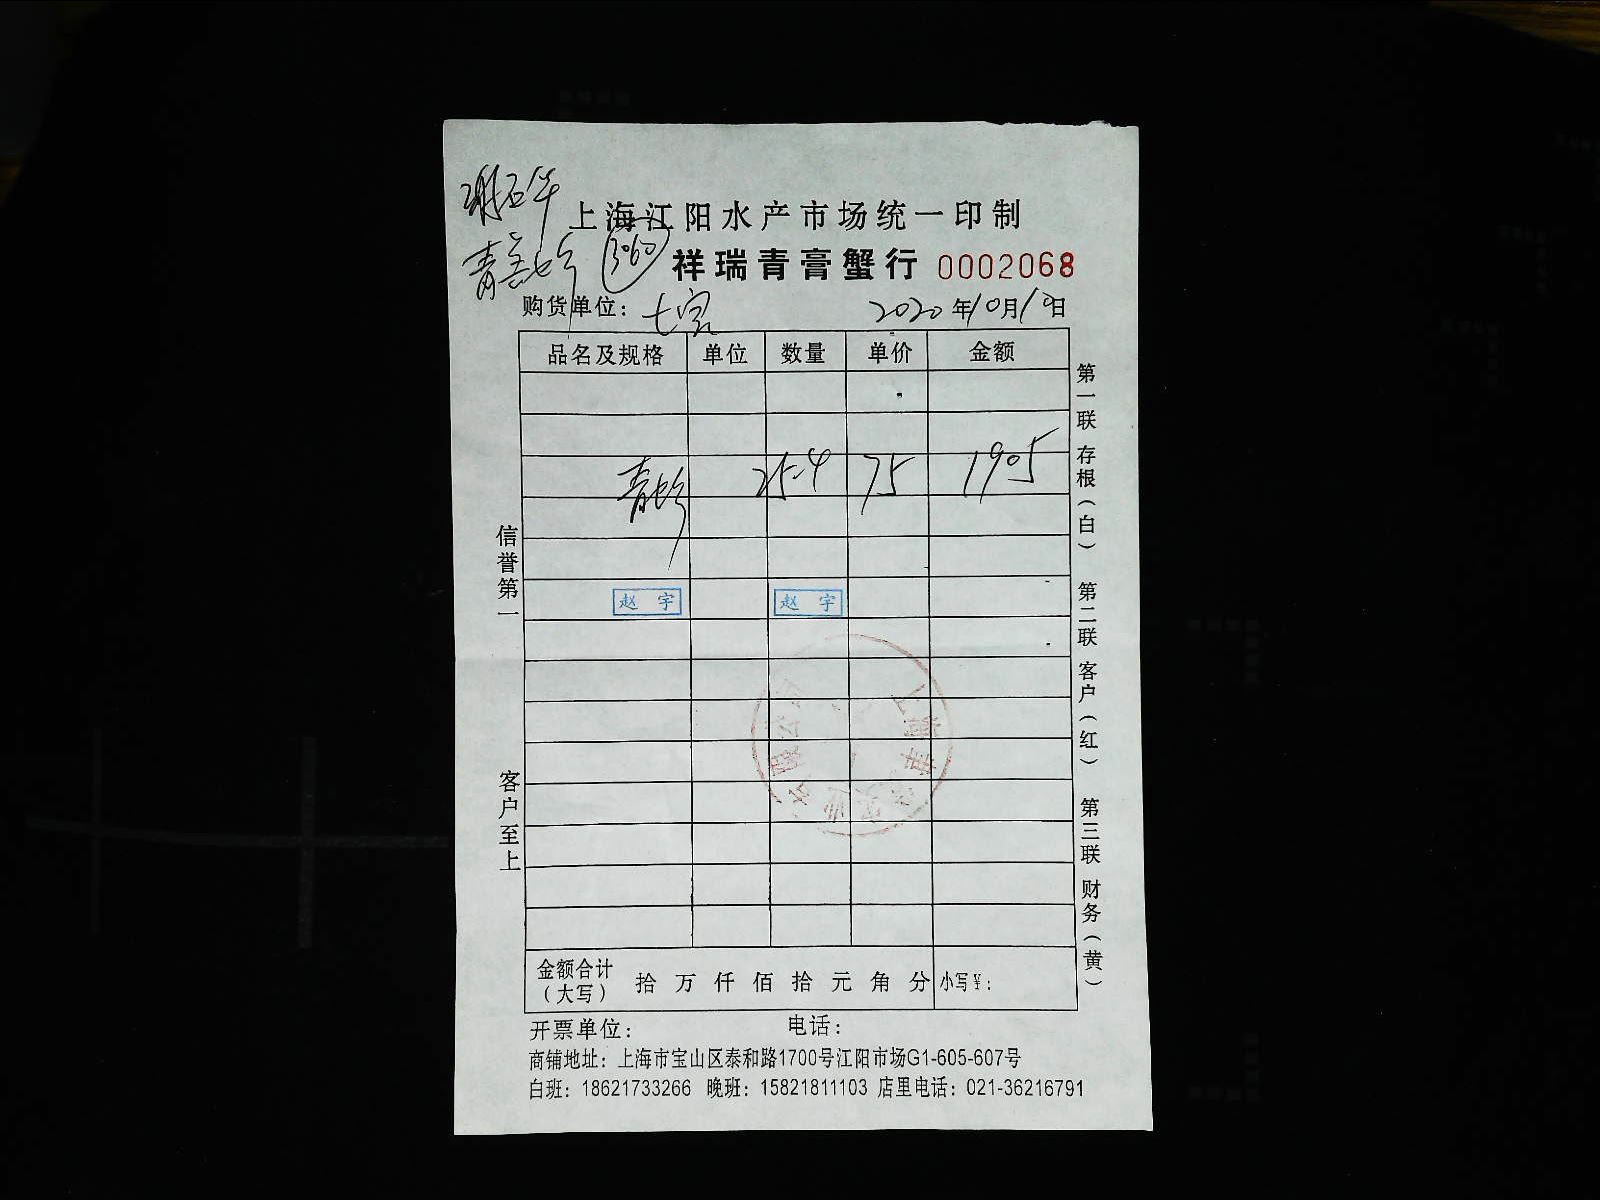 上海江阳水产市场统一印制
3060
祥瑞青膏蟹行 0002068
购货单位：七宝 2020年10月10日
品名及规格 单位 数量 单价 金额
青 25.4 75 1905
赵宇 赵宇
金额合计（大写） 拾 万 仟 佰 拾 元 角 分 小写￥：
开票单位： 电话：
商铺地址：上海市宝山区泰和路1700号江阳市场G1-605-607号
白班：18621733266 晚班：15821811103 店里电话：021-36216791
信誉第一
客户至上
第一联 存根（白）
第二联 客户（红）
第三联 财务（黄）